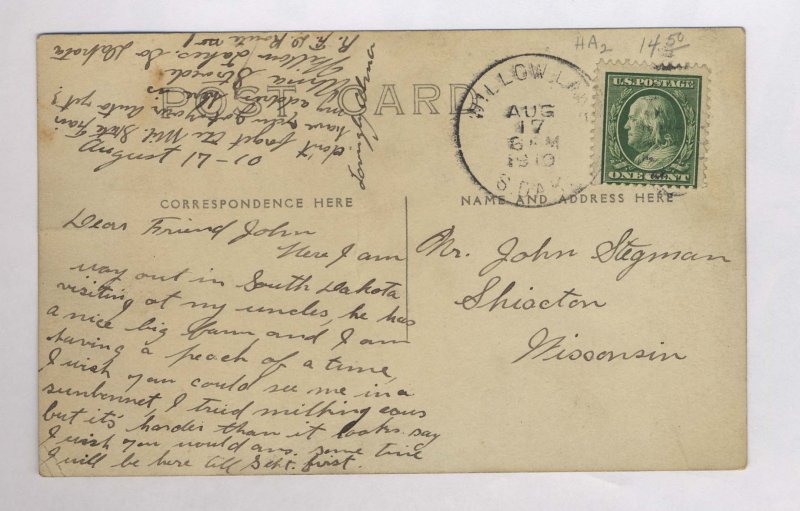 HA2 14.50
POST CARD
WILLOW LAKE
AUG
17
6 AM
1910
S. DAK.
U.S. POSTAGE
ONE CENT
CORRESPONDENCE HERE
NAME AND ADDRESS HERE
Dear Friend John
Here I am
way out in South Dakota
visiting at my uncles, he has
a nice big barn and I am
having a peach of a time,
I wish you could see me in a
sunbonnet, I tried milking cows
but it's harder than it looks. say
I wish you would ans. some time
I will be here till Sept. first.
August 17-10
don't forget the Mil State Fair
have you got your auto yet?
my address here is
Alma
Willow Lakes. So Dakota
R.F.D Route no 1
Lovingly Alma
Mr. John Stegman
Shiocton
Wissonsin